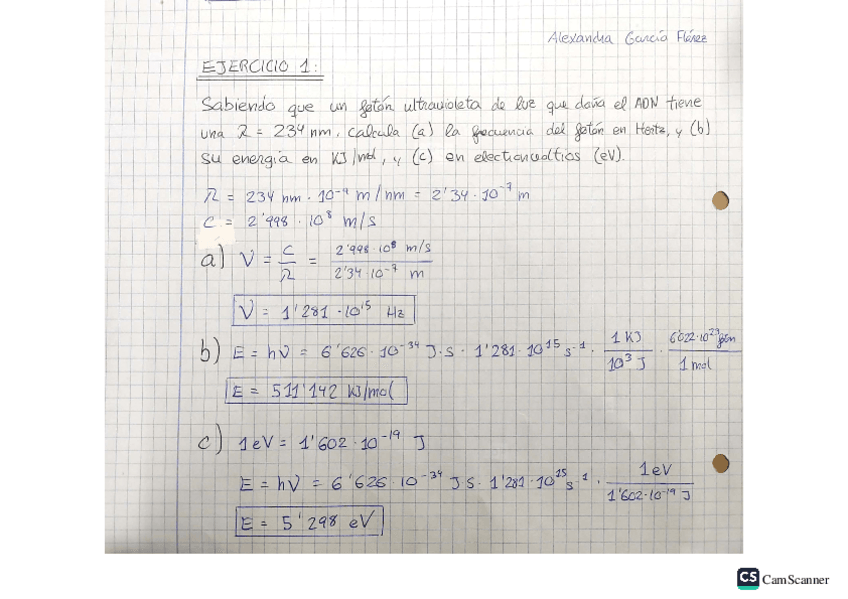 Alexandra García Flórez
EJERCICIO 1:
Sabiendo que un fotón ultravioleta de luz que daña el ADN tiene
una λ = 234 nm, calcula (a) la frecuencia del fotón en Hertz, y (b)
su energía en KJ/mol, y (c) en electronvoltios (eV).
λ = 234 nm · 10⁻⁹ m/nm = 2'34 · 10⁻⁷ m
c = 2'998 · 10⁸ m/s
a) ν = c/λ = 2'998·10⁸ m/s / 2'34·10⁻⁷ m
ν = 1'281 · 10¹⁵ Hz
b) E = hν = 6'626 · 10⁻³⁴ J·s · 1'281 · 10¹⁵ s⁻¹ · 1 KJ / 10³ J · 6'022·10²³ / 1 mol
E = 511'142 KJ/mol
c) 1 eV = 1'602 · 10⁻¹⁹ J
E = hν = 6'626 · 10⁻³⁴ J s · 1'281 · 10¹⁵ s⁻¹ · 1 eV / 1'602·10⁻¹⁹ J
E = 5'298 eV
CS CamScanner